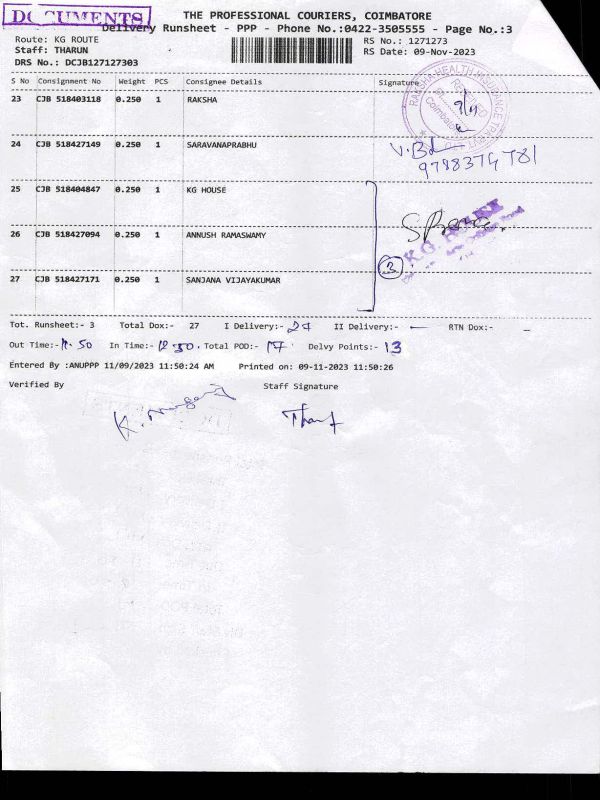 DOCUMENTS
THE PROFESSIONAL COURIERS, COIMBATORE
Delivery Runsheet - PPP - Phone No.:0422-3505555 - Page No.:3
Route: KG ROUTE
RS No.: 1271273
Staff: THARUN
RS Date: 09-Nov-2023
DRS No.: DCJB127127303
S No Consignment No Weight PCS Consignee Details Signature
23 CJB 518403118 0.250 1 RAKSHA
RAKSHA HEALTH INSURANCE TPA PVT LTD
Coimbatore
24 CJB 518427149 0.250 1 SARAVANAPRABHU
25 CJB 518404847 0.250 1 KG HOUSE
26 CJB 518427094 0.250 1 ANNUSH RAMASWAMY
K.G. HOUSE
3
27 CJB 518427171 0.250 1 SANJANA VIJAYAKUMAR
Tot. Runsheet:- 3 Total Dox:- 27 I Delivery:- 27 II Delivery:- - RTN Dox:- -
Out Time:- 11.50 In Time:- 12.30. Total POD:- 17 Delvy Points:- 13
Entered By :ANUPPP 11/09/2023 11:50:24 AM Printed on: 09-11-2023 11:50:26
Verified By Staff Signature